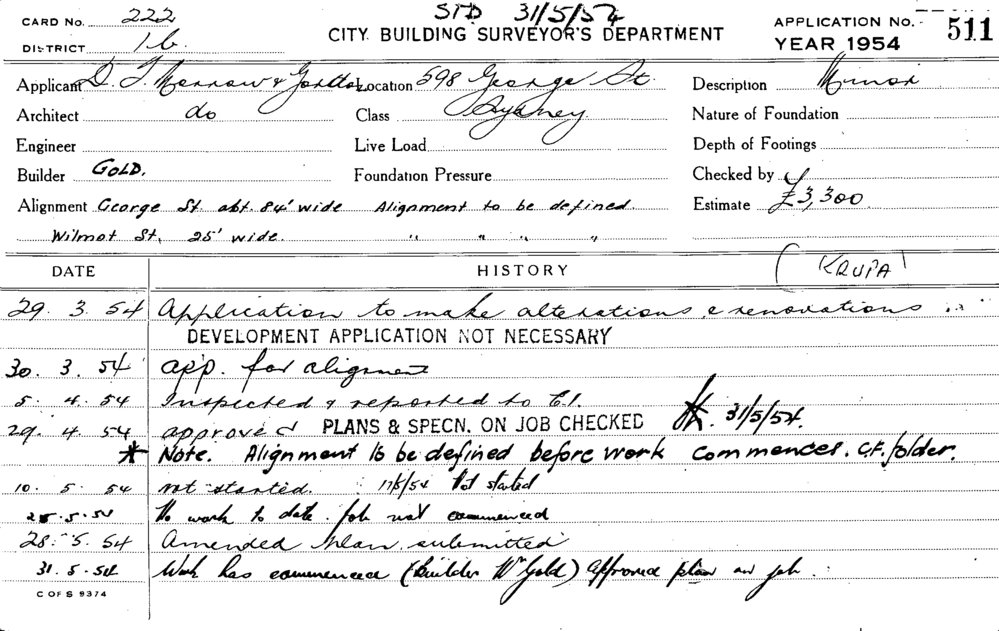 CARD No. 222
DISTRICT 1b.
STD 31/5/54
CITY BUILDING SURVEYOR'S DEPARTMENT
APPLICATION No. 511
YEAR 1954
Applicant D. T. Morrow & Gordon Location 598 George St. Description Minor
Architect do Class Sydney Nature of Foundation
Engineer Live Load Depth of Footings
Builder GOLD. Foundation Pressure Checked by
Alignment George St. abt. 84' wide Alignment to be defined. Estimate £3,300
Wilmot St. 25' wide. " " " "
DATE HISTORY (KRUPA)
29. 3. 54 Application to make alterations & renovations
DEVELOPMENT APPLICATION NOT NECESSARY
30. 3. 54 app. for alignment
5. 4. 54 Inspected & reported to C.I.
29. 4. 54 approved PLANS & SPECN. ON JOB CHECKED 31/5/54.
* Note. Alignment to be defined before work commences. G.F. folder.
10. 5. 54 not started. 17/5/54 Not started
25.5.54 No work to date. Job not commenced
28. 5. 54 Amended plan submitted
31. 5. 54 Work has commenced (Builder Wm Gold) Approved plan on job.
C OF S 9374